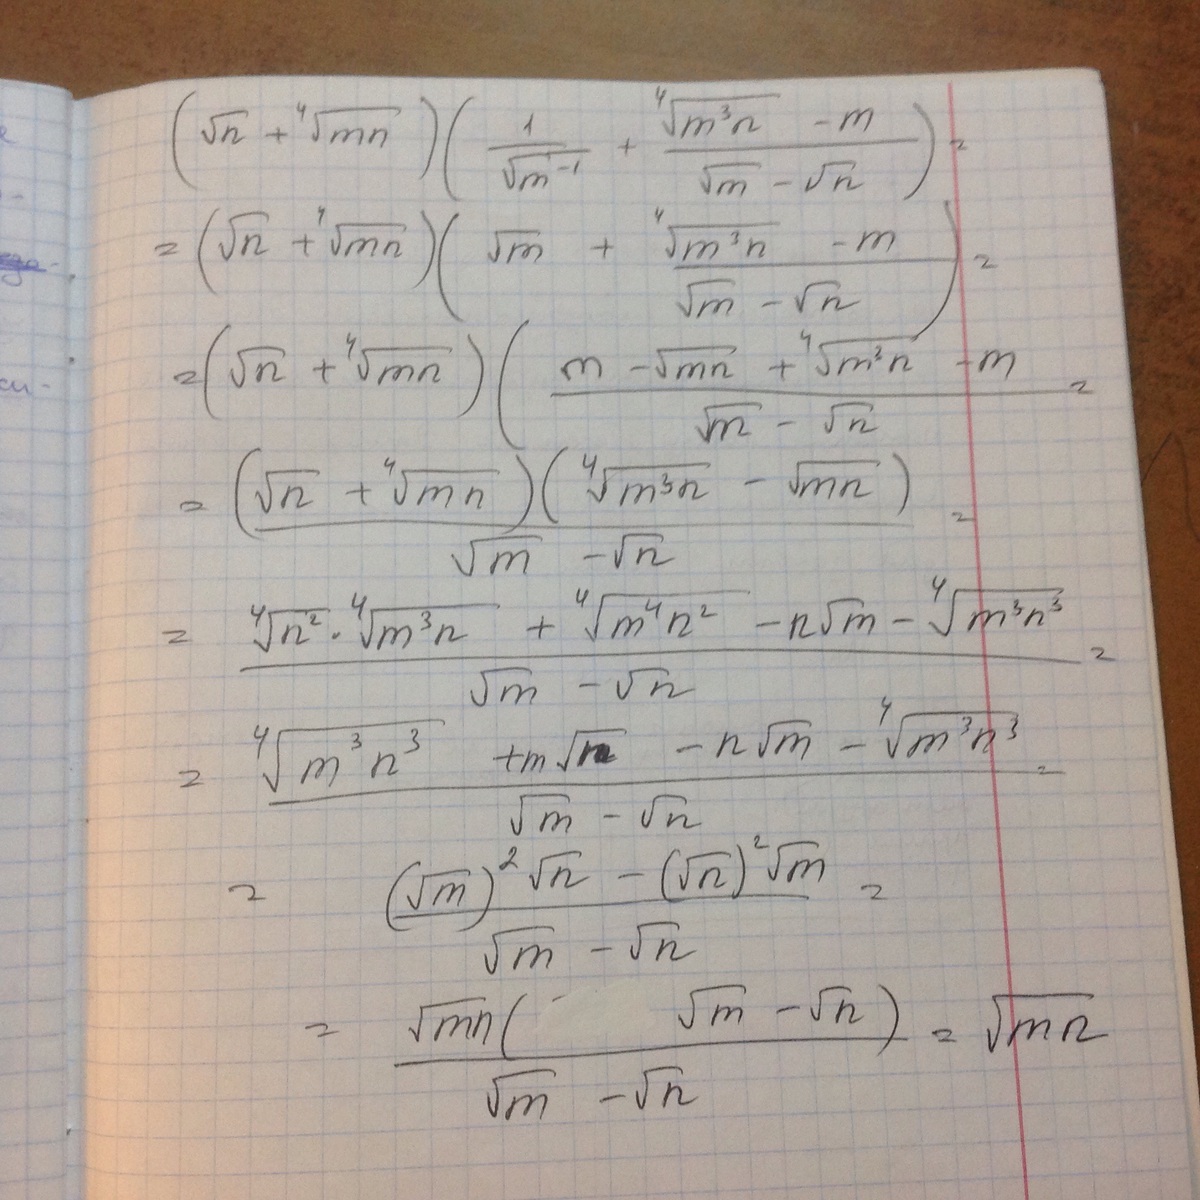 (√n + ⁴√(mn))(1/√m⁻¹ + (⁴√(m³n) - m)/(√m - √n)) =
= (√n + ⁴√(mn))(√m + (⁴√(m³n) - m)/(√m - √n)) =
= (√n + ⁴√(mn))((m - √(mn) + ⁴√(m³n) - m)/(√m - √n) =
= (√n + ⁴√(mn))(⁴√(m³n) - √(mn))/(√m - √n) =
= (⁴√n² · ⁴√(m³n) + ⁴√(m⁴n²) - n√m - ⁴√(m³n³))/(√m - √n) =
= (⁴√(m³n³) + m√n - n√m - ⁴√(m³n³))/(√m - √n) =
= ((√m)²√n - (√n)²√m)/(√m - √n) =
= √(mn)(√m - √n)/(√m - √n) = √(mn)